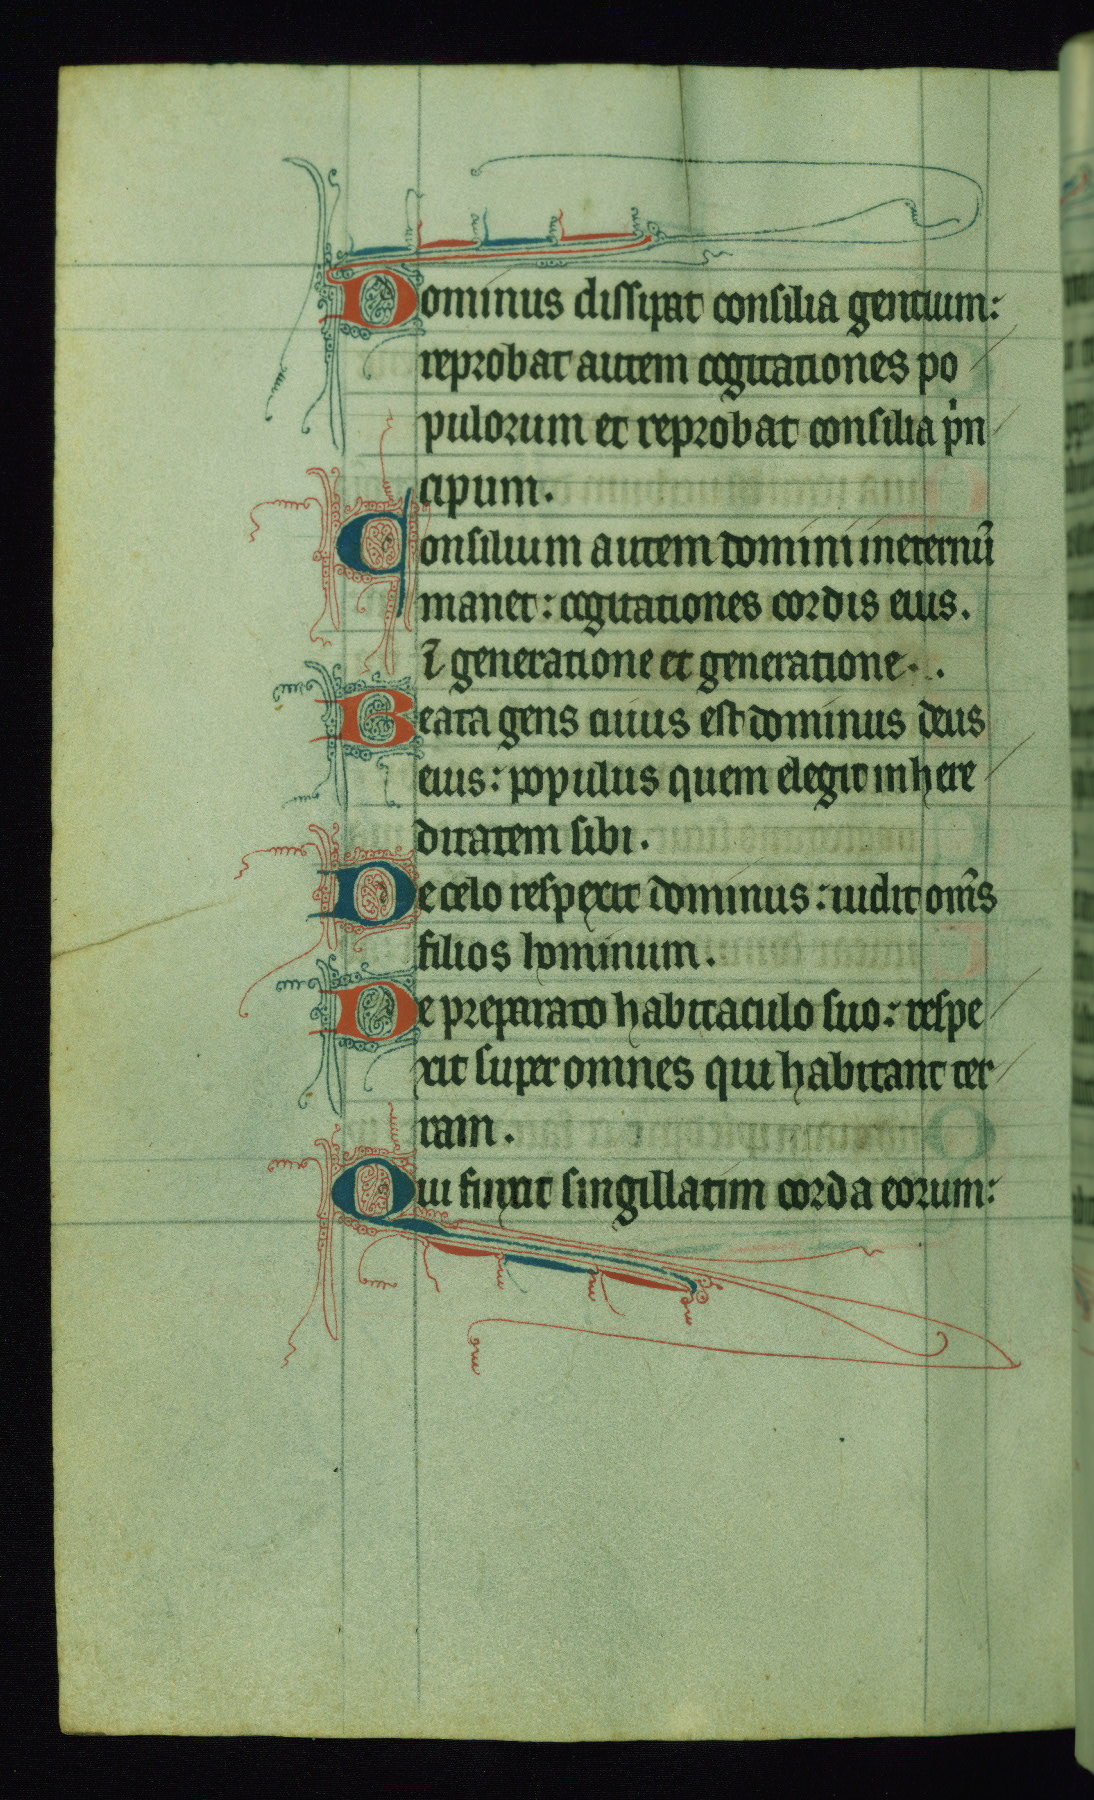 Dominus dissipat consilia gentium:
reprobat autem cogitationes po
pulorum et reprobat consilia p̍n
cipum.
Consilium autem domini ineternū
manet: cogitationes cordis eius.
ī generatione et generatione.
Beata gens cuius est dominus deus
eius: populus quem elegit inhere
ditatem sibi.
De celo respexit dominus: uidit om̄s
filios hominum.
De preparato habitaculo suo: respe
xit super omnes qui habitant ter
ram.
Qui finxit singillatim corda eorum: